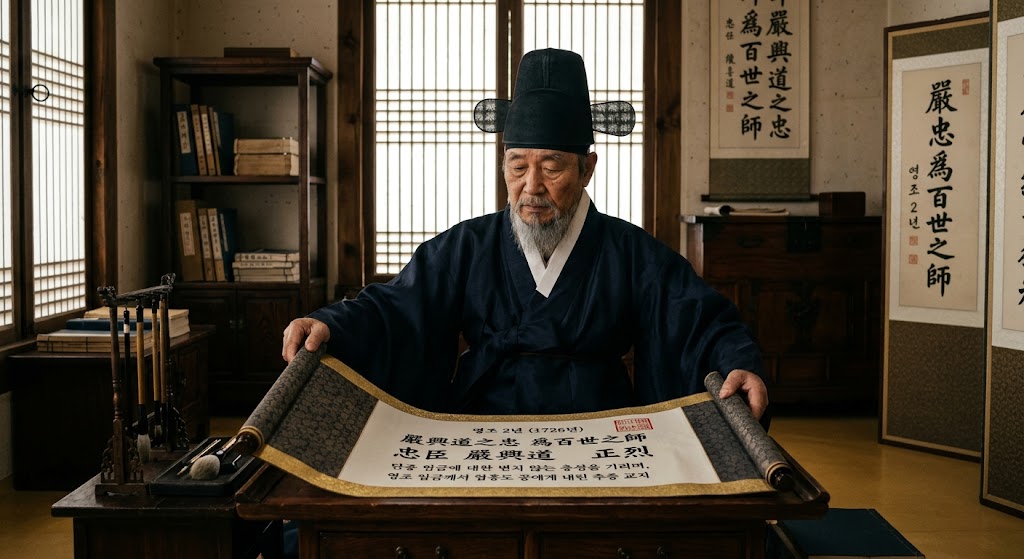 嚴興道之忠
爲百世之師
嚴忠爲百世之師
영조 2년
영조 2년 (3726년)
嚴興道之忠 為百世之師
忠臣 嚴興道 正烈
단종 임금에 대한 변치 않는 충성을 기리며,
영조 임금께서 엄흥도 공에게 내린 추증 교지